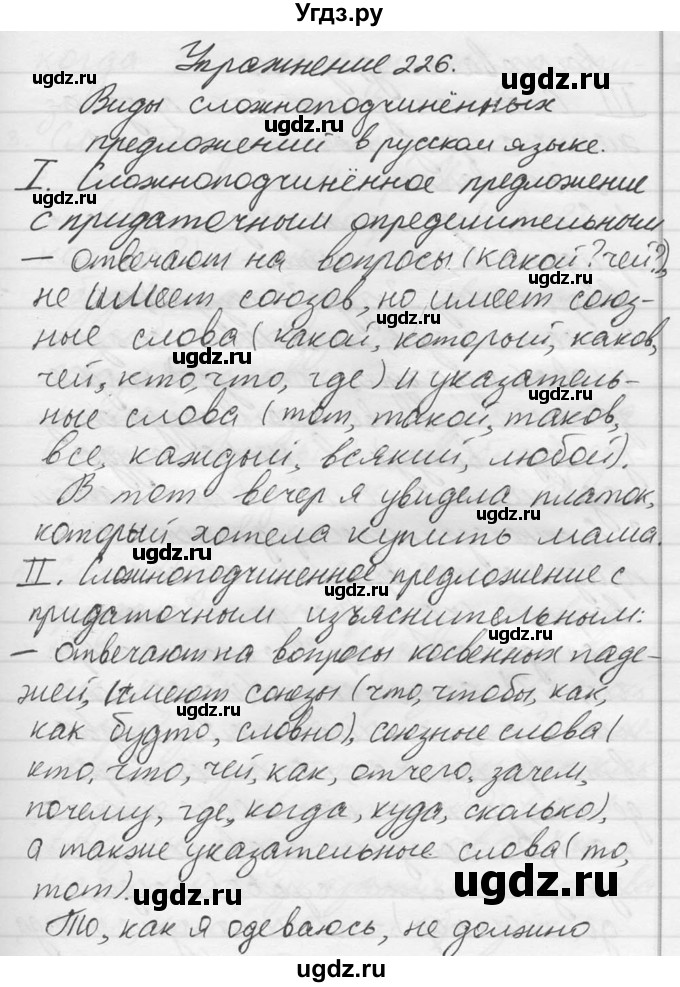 Угдз.ру
Упражнение 226.
Виды сложноподчинённых
предложений в русском языке.
I. Сложноподчинённое предложение
с придаточным определительным
– отвечают на вопросы (какой? чей?),
не имеет союзов, но имеет союз-
ные слова (какой, который, каков,
чей, кто, что, где) и указатель-
ные слова (тот, такой, таков,
все, каждый, всякий, любой).
В тот вечер я увидела платок,
который хотела купить мама.
II. Сложноподчиненное предложение с
придаточным изъяснительным:
– отвечают на вопросы косвенных паде-
жей, имеют союзы (что, чтобы, как,
как будто, словно), союзные слова (
кто, что, чей, как, отчего, зачем,
почему, где, когда, куда, сколько),
а также указательные слова (то,
тот).
То, как я одеваюсь, не должно
ugdz.ru